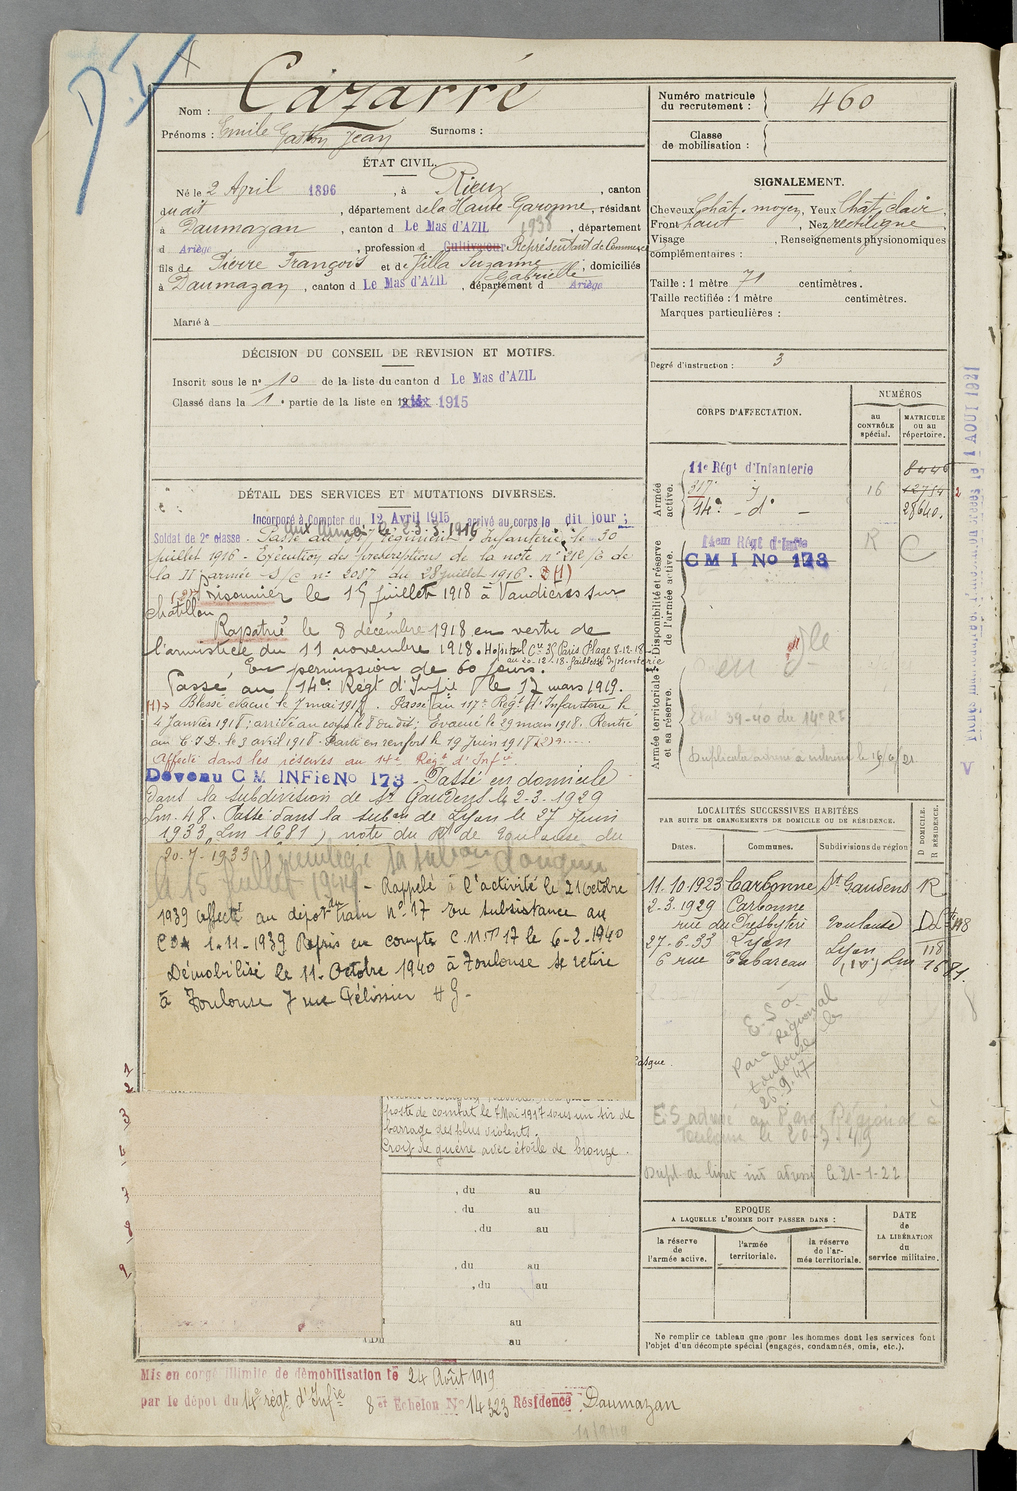 Nom : Cazarré
Prénoms : Emile Gaston Jean Surnoms :
Numéro matricule du recrutement : 460
Classe de mobilisation :
ÉTAT CIVIL.
Né le 2 April 1896, à Rieux, canton
dudit, département de la Haute Garonne, résidant
à Daumazan, canton d Le Mas d'AZIL 1938, département
d Ariège, profession d Cultivateur Représentant de Commerce
fils de Pierre François et de Jilla Suzanne Gabrielle, domiciliés
à Daumazan, canton d Le Mas d'AZIL, département d Ariège
Marié à
SIGNALEMENT.
Cheveux Chât. moyen, Yeux Chât. clair,
Front haut, Nez rectiligne,
Visage , Renseignements physionomiques
complémentaires :
Taille : 1 mètre 71 centimètres.
Taille rectifiée : 1 mètre centimètres.
Marques particulières :
Degré d'instruction : 3
DÉCISION DU CONSEIL DE REVISION ET MOTIFS.
Inscrit sous le n° 10 de la liste du canton d Le Mas d'AZIL
Classé dans la 1e partie de la liste en 1915
CORPS D'AFFECTATION.
NUMÉROS
au CONTRÔLE spécial.
MATRICULE ou au répertoire.
Armée active.
11e Régt d'Infanterie 8446
317e 16 12754
14e - d° - 28640.
Disponibilité et réserve de l'armée active.
14em Régt d'Infie R C
C M I No 173
Armée territoriale et sa réserve.
Etat 39-40 du 14e RI
Fiches matricules
1 AOUT 1921
DÉTAIL DES SERVICES ET MUTATIONS DIVERSES.
Incorporé à Compter du 12 Avril 1915 arrivé au corps le dit jour ;
Soldat de 2e classe - Passé au Régiment d'Infanterie le 30
juillet 1916 - Exécution des prescriptions de la note n° 212/C de
la II armée - S/C n° 2087 du 28 juillet 1916. (1)
(2) Prisonnier le 15 juillet 1918 à Vandières sur
chatillon
Rapatrié le 8 décembre 1918 en vertu de
l'armistice du 11 novembre 1918.
En permission de 60 jours.
Passé au 14e Régt d'Infie le 17 mars 1919.
(1)→ Blessé évacué le 7 mai 1917. Passé au 117e Régt d'Infanterie le
4 Janvier 1918 ; arrivé au corps le 8 dudit ; Evacué le 29 mars 1918. Rentré
au C.I.D. le 3 avril 1918. Parti en renfort le 19 Juin 1918 (2)
Affecté dans les réserves au 14e Régt d'Infie
Devenu C M INFie No 173 - Passé en domicile
dans la subdivision de St Gaudens le 2-3-1929
Lm. 48. Passé dans la subon de Lyon le 27 Juin
1933 Lm 1681, note du R de Toulouse du
20-7-1933
le 15 juillet
- Rappelé à l'activité le 21 Octobre
1939 affecté au dépot train n° 17 En subsistance au
1-11-1939 Repris en compte C.M.T 17 le 6-2-1940
Démobilisé le 11 Octobre 1940 à Toulouse se retire
à Toulouse 7 rue Pélissier H G.
poste de combat le 7 Mai 1917 sous un tir de
barrage des plus violents.
Croix de guerre avec étoile de bronze.
, du au
, du au
, du au
, du au
, du au
au
au
LOCALITÉS SUCCESSIVES HABITÉES
PAR SUITE DE CHANGEMENTS DE DOMICILE OU DE RÉSIDENCE.
Dates. Communes. Subdivisions de région D DOMICILE. R RÉSIDENCE.
11.10.1923 Carbonne St Gaudens R
2-3-1929 Carbonne
rue du Presbytère Toulouse D
27-6-33 Lyon Lyon 118
6 rue Tabareau Lm 1681.
E.S à
Parc Régional
Toulouse le
26.9.47
E.S adressé au Parc Régional à
Toulouse le 20-7-49
Dupl. de livret int adressé le 21-1-22
EPOQUE
A LAQUELLE L'HOMME DOIT PASSER DANS :
la réserve de l'armée active.
l'armée territoriale.
la réserve de l'armée territoriale.
DATE de LA LIBÉRATION du service militaire.
Ne remplir ce tableau que pour les hommes dont les services font
l'objet d'un décompte spécial (engagés, condamnés, omis, etc.).
Mis en congé illimité de démobilisation le 24 Août 1919
par le dépot du 14e régt. d'Infie 8e Echelon No 14323 Résidence Daumazan